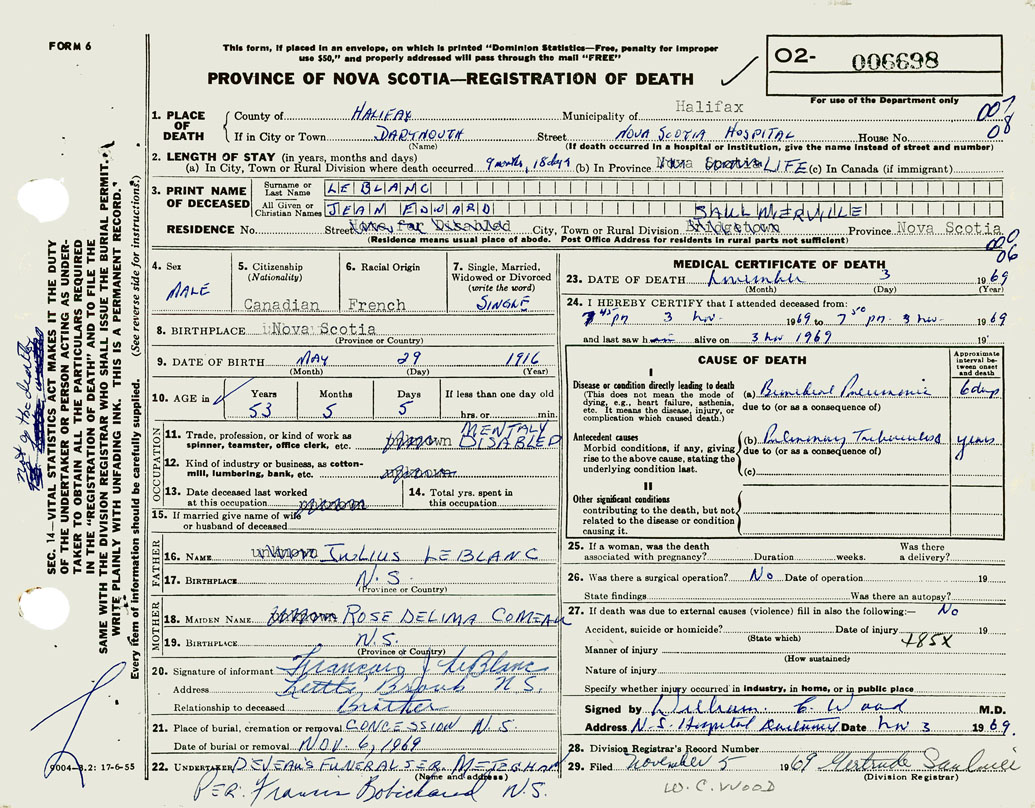 FORM 6
This form, if placed in an envelope, on which is printed "Dominion Statistics—Free, penalty for improper
use $50," and properly addressed will pass through the mail "FREE"
PROVINCE OF NOVA SCOTIA—REGISTRATION OF DEATH
O2- 006698
For use of the Department only
1. PLACE OF DEATH
County of HALIFAX Municipality of Halifax
007
08
If in City or Town DARTMOUTH Street NOVA SCOTIA HOSPITAL House No.
(Name) (If death occurred in a hospital or institution, give the name instead of street and number)
2. LENGTH OF STAY (in years, months and days)
(a) In City, Town or Rural Division where death occurred 9 months, 18 days (b) In Province Nova Scotia LIFE (c) In Canada (if immigrant)
3. PRINT NAME OF DECEASED
Surname or Last Name LEBLANC
All Given or Christian Names JEAN EDWARD
SAULNIERVILLE
RESIDENCE No. Street Home for Disabled City, Town or Rural Division Province Nova Scotia
(Residence means usual place of abode. Post Office Address for residents in rural parts not sufficient)
000
06
4. Sex
MALE
5. Citizenship
(Nationality)
Canadian
6. Racial Origin
French
7. Single, Married,
Widowed or Divorced
(write the word)
SINGLE
8. BIRTHPLACE Nova Scotia
(Province or Country)
9. DATE OF BIRTH MAY 29 1916
(Month) (Day) (Year)
10. AGE in
Years Months Days If less than one day old
53 5 5 hrs. or min.
OCCUPATION
11. Trade, profession, or kind of work as
spinner, teamster, office clerk, etc. unknown MENTALY
DISABLED
12. Kind of industry or business, as cotton-
mill, lumbering, bank, etc. unknown
13. Date deceased last worked
at this occupation unknown
14. Total yrs. spent in
this occupation
15. If married give name of wife
or husband of deceased
FATHER
16. NAME unknown JULIUS LEBLANC
17. BIRTHPLACE N.S.
(Province or Country)
MOTHER
18. MAIDEN NAME unknown ROSE DELIMA COMEAU
19. BIRTHPLACE N.S.
(Province or Country)
20. Signature of informant Francois J LeBlanc
Address Little Brook N.S.
Relationship to deceased Brother
21. Place of burial, cremation or removal CONCESSION N.S.
Date of burial or removal NOV. 6, 1969
22. UNDERTAKER DEVEAU'S FUNERAL SER. METEGHAN
(Name and address)
PER: Francis Robichaud N.S.
MEDICAL CERTIFICATE OF DEATH
23. DATE OF DEATH November 3 1969
(Month) (Day) (Year)
24. I HEREBY CERTIFY that I attended deceased from:
7 45 pm 3 nov. 1969 to 7 50 pm. 3 nov. 1969
and last saw h alive on 3 nov 1969 19
CAUSE OF DEATH
Approximate
interval be-
tween onset
and death
I
Disease or condition directly leading to death
(This does not mean the mode of
dying, e.g., heart failure, asthenia,
etc. It means the disease, injury, or
complication which caused death.)
(a) Bronchial Pneumonia 6 days
due to (or as a consequence of)
Antecedent causes
Morbid conditions, if any, giving
rise to the above cause, stating the
underlying condition last.
(b) Pulmonary Tuberculosis years
due to (or as a consequence of)
(c)
II
Other significant conditions
contributing to the death, but not
related to the disease or condition
causing it.
25. If a woman, was the death
associated with pregnancy? Duration weeks. Was there
a delivery?
26. Was there a surgical operation? No Date of operation 19
State findings Was there an autopsy?
27. If death was due to external causes (violence) fill in also the following:— No
Accident, suicide or homicide? Date of injury 19
(State which)
Manner of injury
(How sustained)
Nature of injury
Specify whether injury occurred in industry, in home, or in public place
Signed by William C Wood M.D.
Address N.S. Hospital Dartmouth Date Nov 3 1969.
28. Division Registrar's Record Number
29. Filed November 5 1969 Gertrude Saulnier
(Division Registrar)
W. C. WOOD
SEC. 14—VITAL STATISTICS ACT MAKES IT THE DUTY
OF THE UNDERTAKER OR PERSON ACTING AS UNDER-
TAKER TO OBTAIN ALL THE PARTICULARS REQUIRED
IN THE "REGISTRATION OF DEATH" AND TO FILE THE
SAME WITH THE DIVISION REGISTRAR WHO SHALL ISSUE THE BURIAL PERMIT.
WRITE PLAINLY WITH UNFADING INK. THIS IS A PERMANENT RECORD.
Every item of information should be carefully supplied. (See reverse side for instructions.)
9004-8.2: 17-6-55